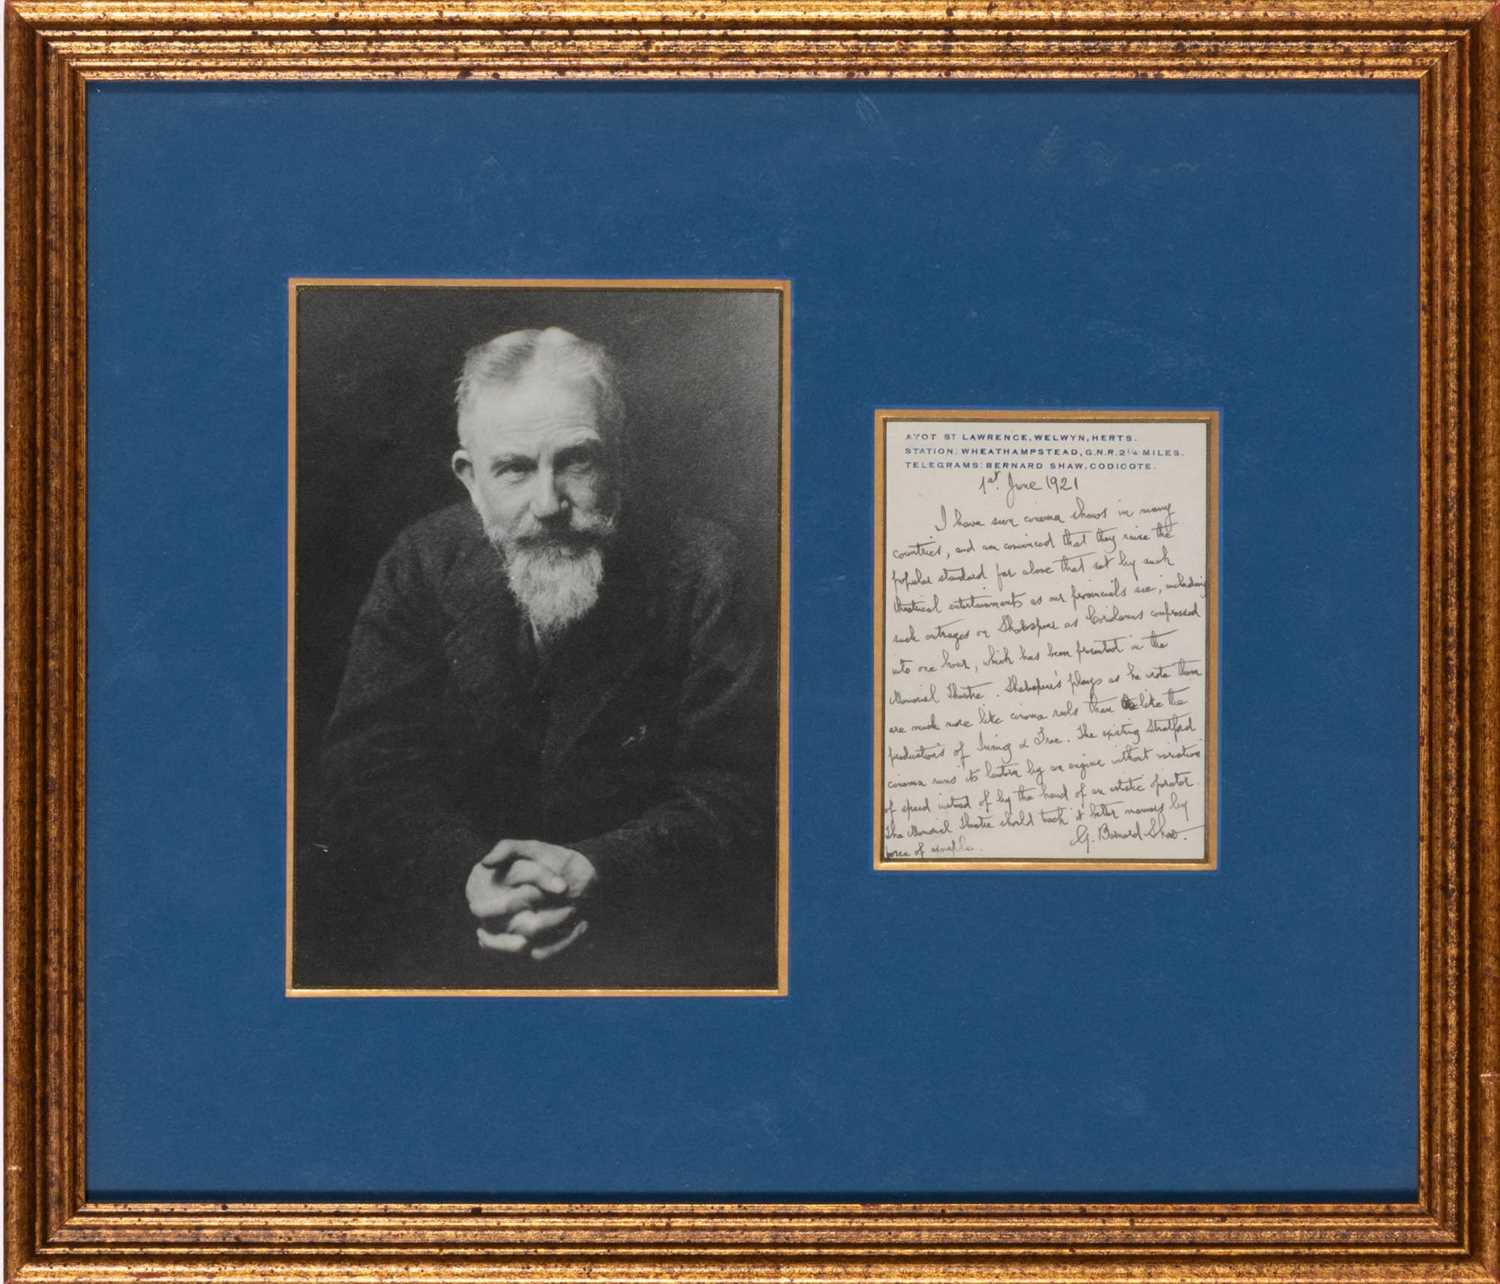 AYOT ST LAWRENCE, WELWYN, HERTS.
STATION: WHEATHAMPSTEAD, G.N.R. 2¼ MILES.
TELEGRAMS: BERNARD SHAW, CODICOTE.
1st June 1921
I have seen cinema shows in many
countries, and am convinced that they raise the
popular standard far above that set by such
theatrical entertainments as our provincials see, including
such outrages on Shakespear as Coriolanus compressed
into one hour, which has been presented in the
Memorial Theatre. Shakespear's plays as he wrote them
are much more like cinema reels than like the
productions of Irving & Tree. The existing Stratford
cinema runs its lantern by an engine without variation
of speed instead of by the hand of an artistic operator.
The Memorial Theatre should teach it better manners by
force of example.
G. Bernard Shaw.